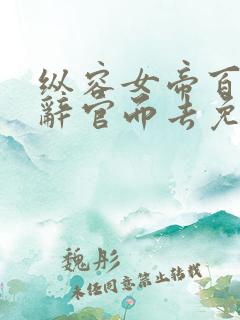 纵容女帝百
辞官而去免
魏彤
未经同意禁止转载